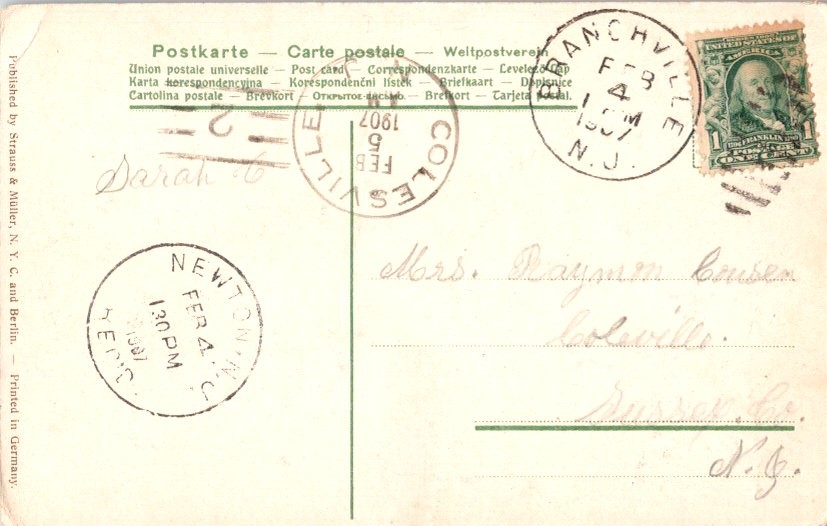 Postkarte — Carte postale — Weltpostverein
Union postale universelle — Post card — Correspondenzkarte — Levelező-Lap
Karta korespondencyjna — Korespondenční lístek — Briefkaart — Dopisnice
Cartolina postale — Brevkort — Открытое письмо — Brefkort — Tarjeta postal.
BRANCHVILLE
FEB
4
1 PM
1907
N.J.
UNITED STATES OF
AMERICA
1 1
FRANKLIN
POSTAGE
ONE CENT
COLESVILLE
N.J.
FEB
5
1907
2
Sarah C
Mrs. Raymon Cousen
Coleville.
Sussex. Co.
N. J.
NEWTON, N.J.
FEB 4
130 PM
1907
REC'D.
Published by Strauss & Müller, N. Y. C. and Berlin. — Printed in Germany.